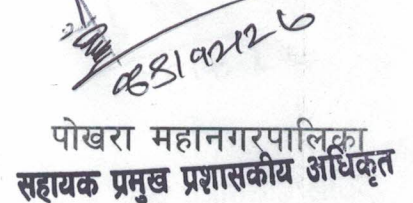 पोखरा महानगरपालिका
सहायक प्रमुख प्रशासकीय अधिकृत